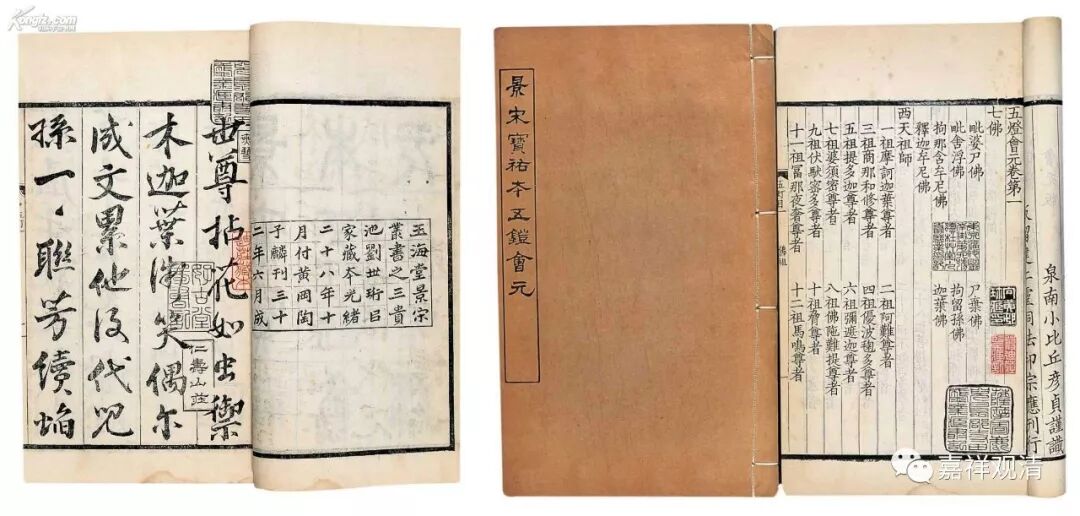 Kongfz.com
玉海堂景宋
叢書之三貴
池劉世珩㠯
家藏本光緒
二十八年十
月付黃岡陶
子麟刊三十
二年六月成
世尊拈花如虫禦
木迦葉微笑偶尔
成文累他後代兒
孫一〻聯芳續焰
仁壽山莊
景宋寶祐本五鐙會元
泉南小比丘彥貞謹識
宗應刊行
五燈會元卷第一
七佛
毗婆尸佛 尸棄佛
毗舍浮佛 拘留孫佛
拘那含牟尼佛 迦葉佛
釋迦牟尼佛
西天祖師
一祖摩訶迦葉尊者 二祖阿難尊者
三祖商那和修尊者 四祖優波毱多尊者
五祖提多迦尊者 六祖彌遮迦尊者
七祖婆須密尊者 八祖佛陁難提尊者
九祖伏馱密多尊者 十祖脅尊者
十一祖富那夜奢尊者 十二祖馬鳴尊者
嘉祥观清